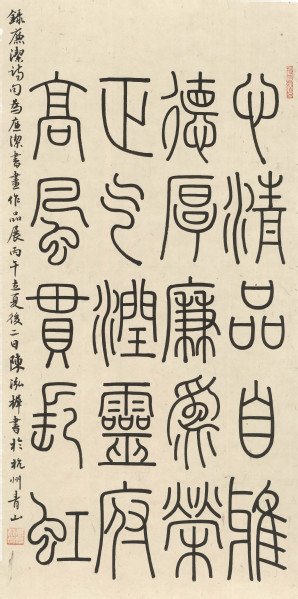 心清品自雅
德厚廉為榮
正气潤靈府
高風貫長虹
錄廉潔詩句為廉潔書畫作品展丙午立夏後二日陳書於杭州青山